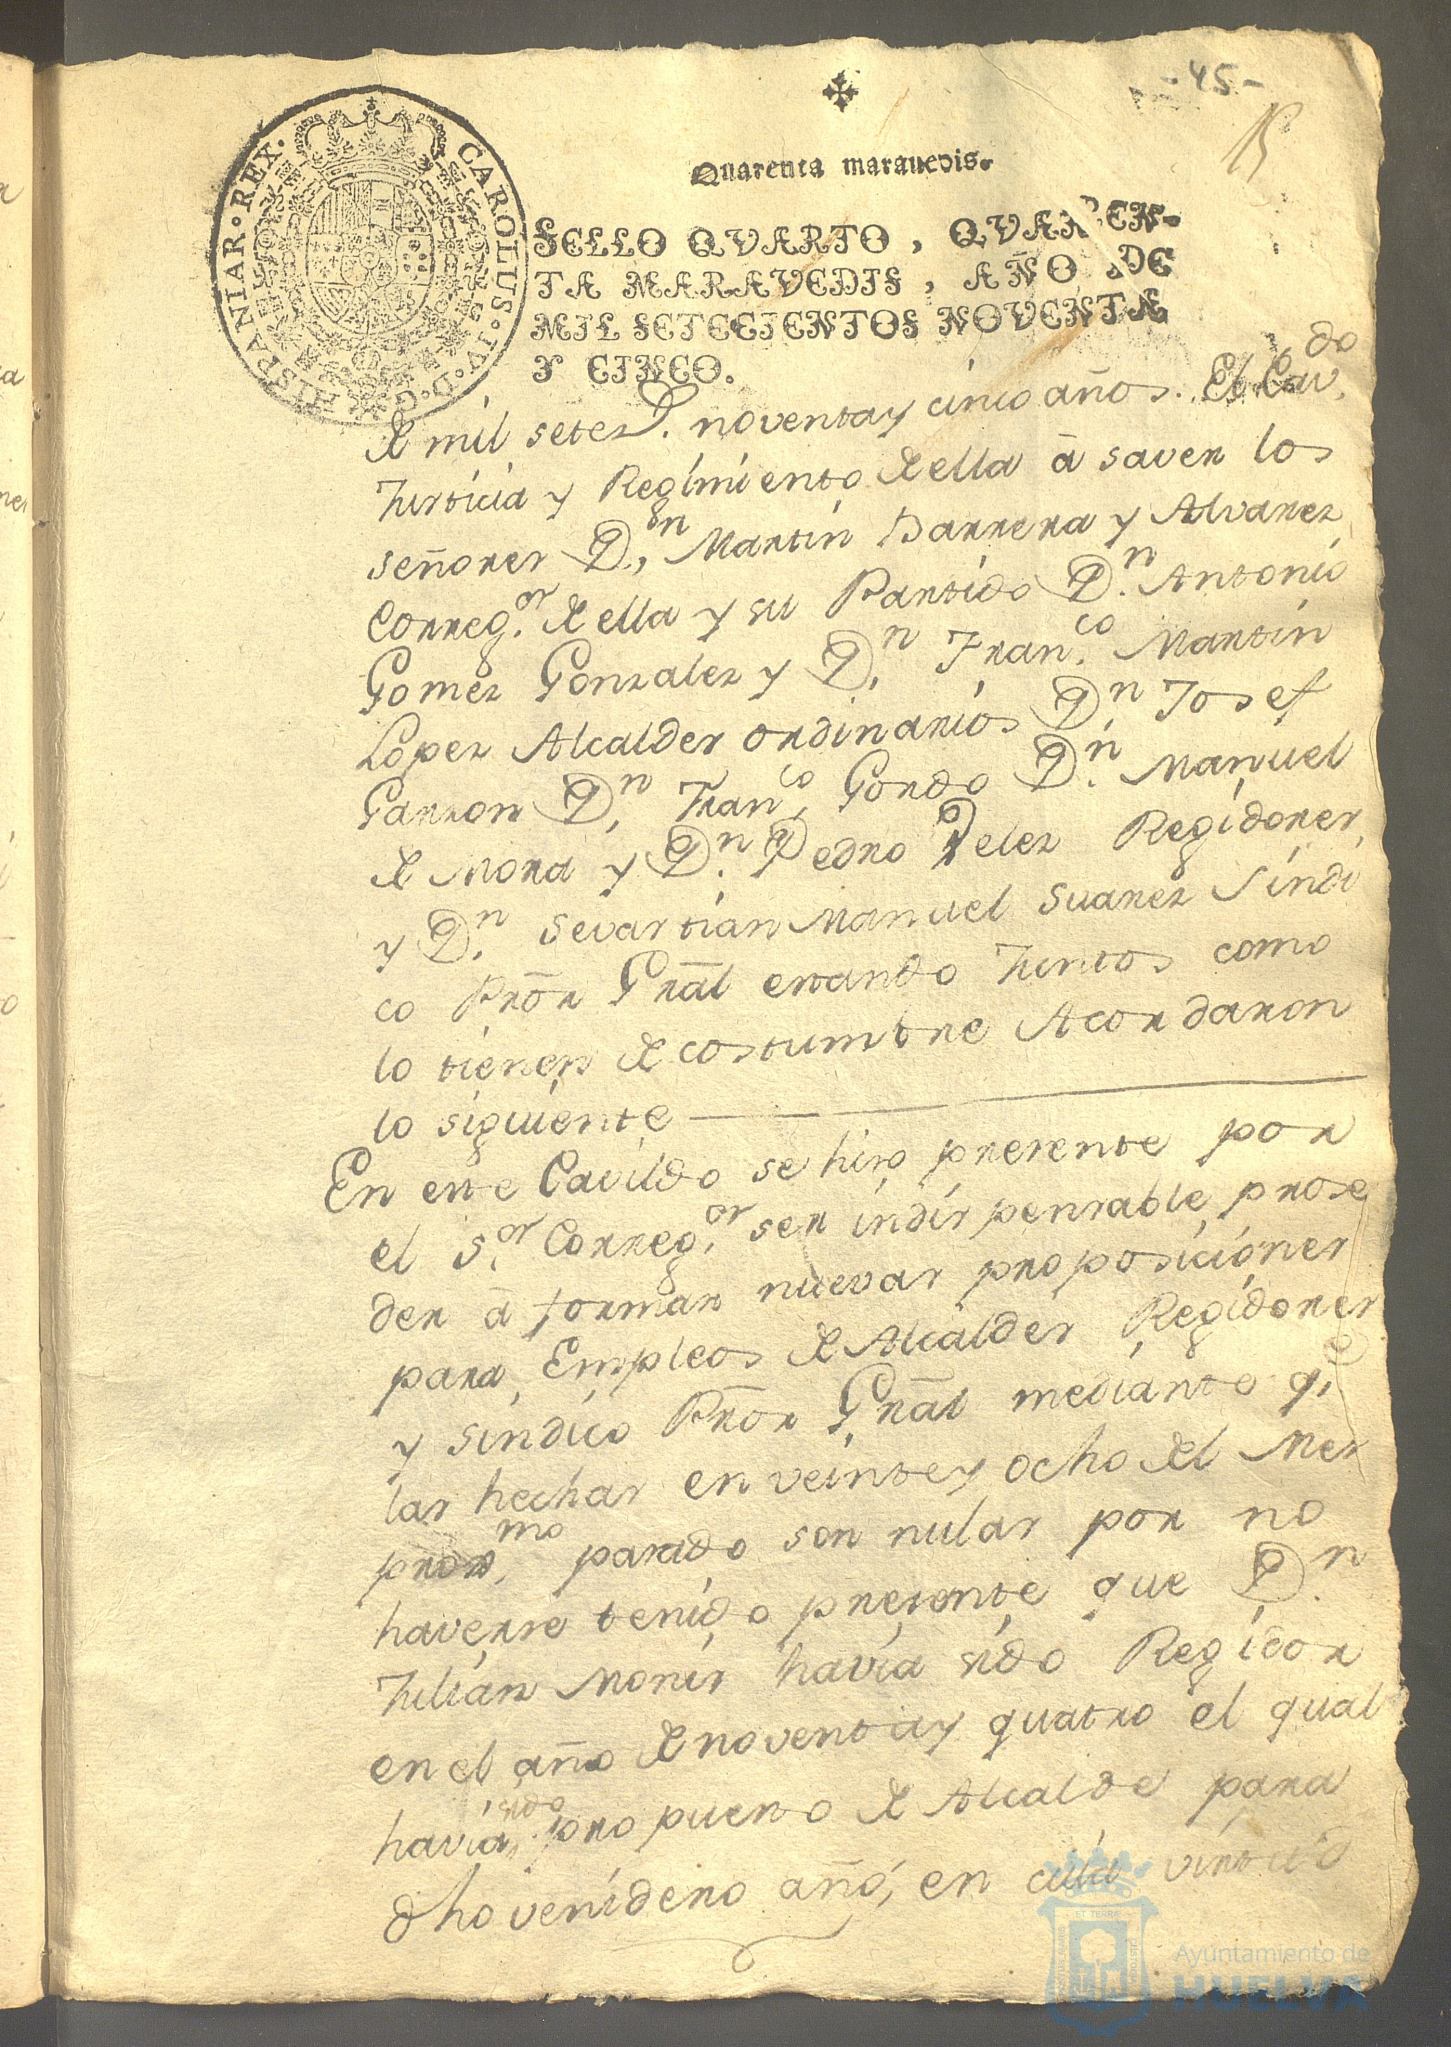 -45-
15
Quarenta marauedis.
HISPANIAR·REX· CAROLUS·IV·D·G·
SELLO QVARTO, QVAREN-
TA MARAVEDIS, AÑO DE
MIL SETECIENTOS NOVENTA
Y CINCO.
de mil setez.s noventa y cinco años. El Cav.do
Justicia y Regimiento de ella â saver los
señores D.n Martin Barrera y Alvarez
Correg.or de ella y su Partido D.n Antonio
Gomez Gonzalez y D.n Fran.co Martin
Lopez Alcaldes ordinarios D.n Josef
Garzon D.n Fran.co Gordo D.n Manuel
de Mora y D.n Pedro Velez Regidores,
y D.n Sevastian Manuel Suarez Sindi
co Prõr Grãl estando Juntos como
lo tienen de costumbre Acordaron
lo siguiente
En este Cavildo se hizo presente por
el S.or Correg.or ser indispensable, prose
der â formar nuevas proposiciones
para Empleos de Alcaldes Regidores
y sindico Prõr Grãl mediante q.e
las hechas en veinte y ocho del Mes
pasado son nulas por no
haverse tenido presente que D.n
Julian Monis havia sido Regidor
en el año de noventa y quatro el qual
havia sido propuesto de Alcalde para
dho venidero año, en cuia virtud
Ayuntamiento de
HUELVA